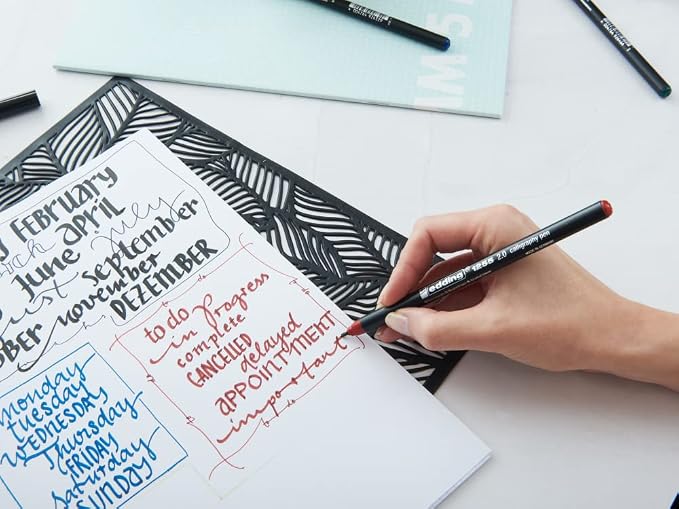 February
April
July
June
September
november
DEZEMBER
to do
in progress
complete
CANCELLED
delayed
APPOINTMENT
important
Monday
Tuesday
WEDNESDAY
Thursday
FRIDAY
Saturday
SUNDAY
edding 1255 2.0 calligraphy pen